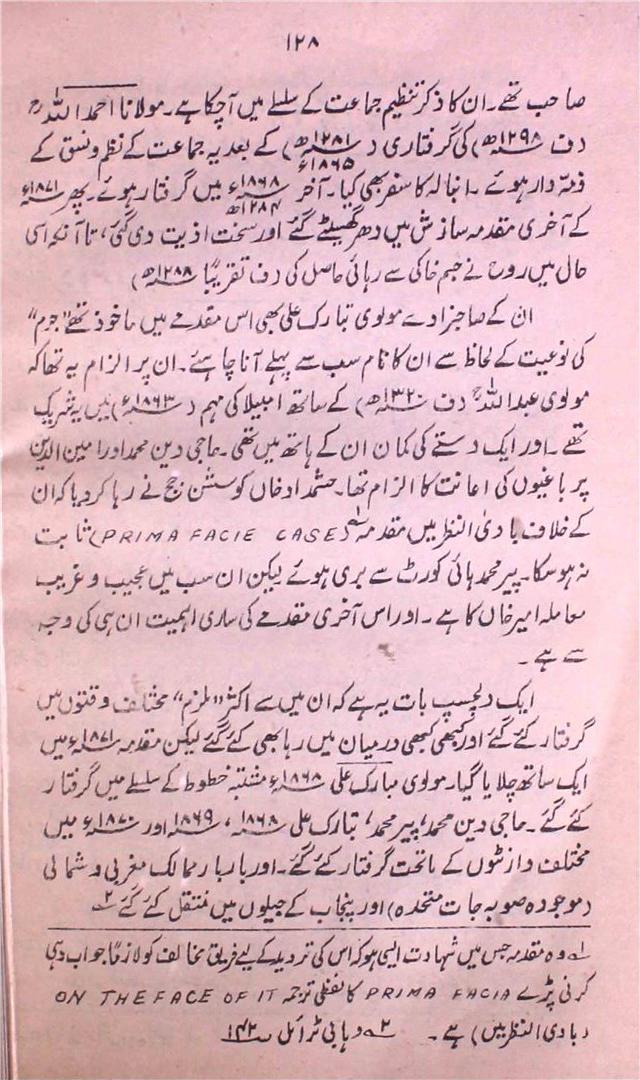 ۱۲۸
صاحب تھے۔ ان کا ذکر تنظیم جماعت کے سلسلے میں آچکا ہے۔ مولانا احمد اللہؒ
(ف ۱۲۹۸ھ) کی گرفتاری (۱۲۸۱ھ ۱۸۶۵ء) کے بعد یہ جماعت کے نظم و نسق کے
ذمہ دار ہوئے۔ انبالہ کا سفر بھی کیا۔ آخر ۱۸۶۸ء ۱۲۸۴ھ میں گرفتار ہوئے۔ پھر ۱۸۷۱ء
کے آخری مقدمہ سازش میں دھر گھسیٹے گئے اور سخت اذیت دی گئی، تا آنکہ اسی
حال میں روح نے جسم خاکی سے رہائی حاصل کی (ف تقریباً ۱۲۸۸ھ)
ان کے صاحبزادے مولوی تبارک علی بھی اس مقدمے میں ماخوذ تھے "جرم"
کی نوعیت کے لحاظ سے ان کا نام سب سے پہلے آنا چاہئے۔ ان پر الزام یہ تھا کہ
مولوی عبد اللہؒ (ف ۱۳۲۰ھ) کے ساتھ امبیلا کی مہم (۱۸۶۳ء) میں یہ شریک
تھے۔ اور ایک دستے کی کمان ان کے ہاتھ میں تھی۔ حاجی دین محمد اور امین الدین
پر باغیوں کی اعانت کا الزام تھا۔ حشمداد خاں کو سشن جج نے رہا کر دیا کہ ان
کے خلاف بادی النظر میں مقدمہ۱ (PRIMA FACIE CASE) ثابت
نہ ہو سکا۔ پیر محمد ہائی کورٹ سے بری ہوئے لیکن ان سب میں عجیب و غریب
معاملہ امیر خاں کا ہے۔ اور اس آخری مقدمے کی ساری اہمیت ان ہی کی وجہ
سے ہے۔
ایک دلچسپ بات یہ ہے کہ ان میں سے اکثر "ملزم" مختلف وقتوں میں
گرفتار کئے گئے اور کبھی کبھی درمیان میں رہا بھی کئے گئے لیکن مقدمہ ۱۸۷۱ء میں
ایک ساتھ چلایا گیا۔ مولوی مبارک علی ۱۸۶۸ء مشتبہ خطوط کے سلسلے میں گرفتار
کئے گئے۔ حاجی دین محمد، پیر محمد، تبارک علی ۱۸۶۸ء، ۱۸۶۹ء اور ۱۸۷۰ء میں
مختلف وارنٹوں کے ماتحت گرفتار کئے گئے۔ اور باربار ممالک مغربی و شمالی
(موجودہ صوبہ جات متحدہ) اور پنجاب کے جیلوں میں منتقل کئے گئے ۲
۱ وہ مقدمہ جس میں شہادت ایسی ہو کہ اس کی تردید کے لیے فریق مخالف کو لازماً جواب دہی
کرنی پڑے PRIMA FACIA کا لفظی ترجمہ ON THE FACE OF IT
(بادی النظر میں) ہے۔ ۲ وہابی ٹرائل ص۱۴۲